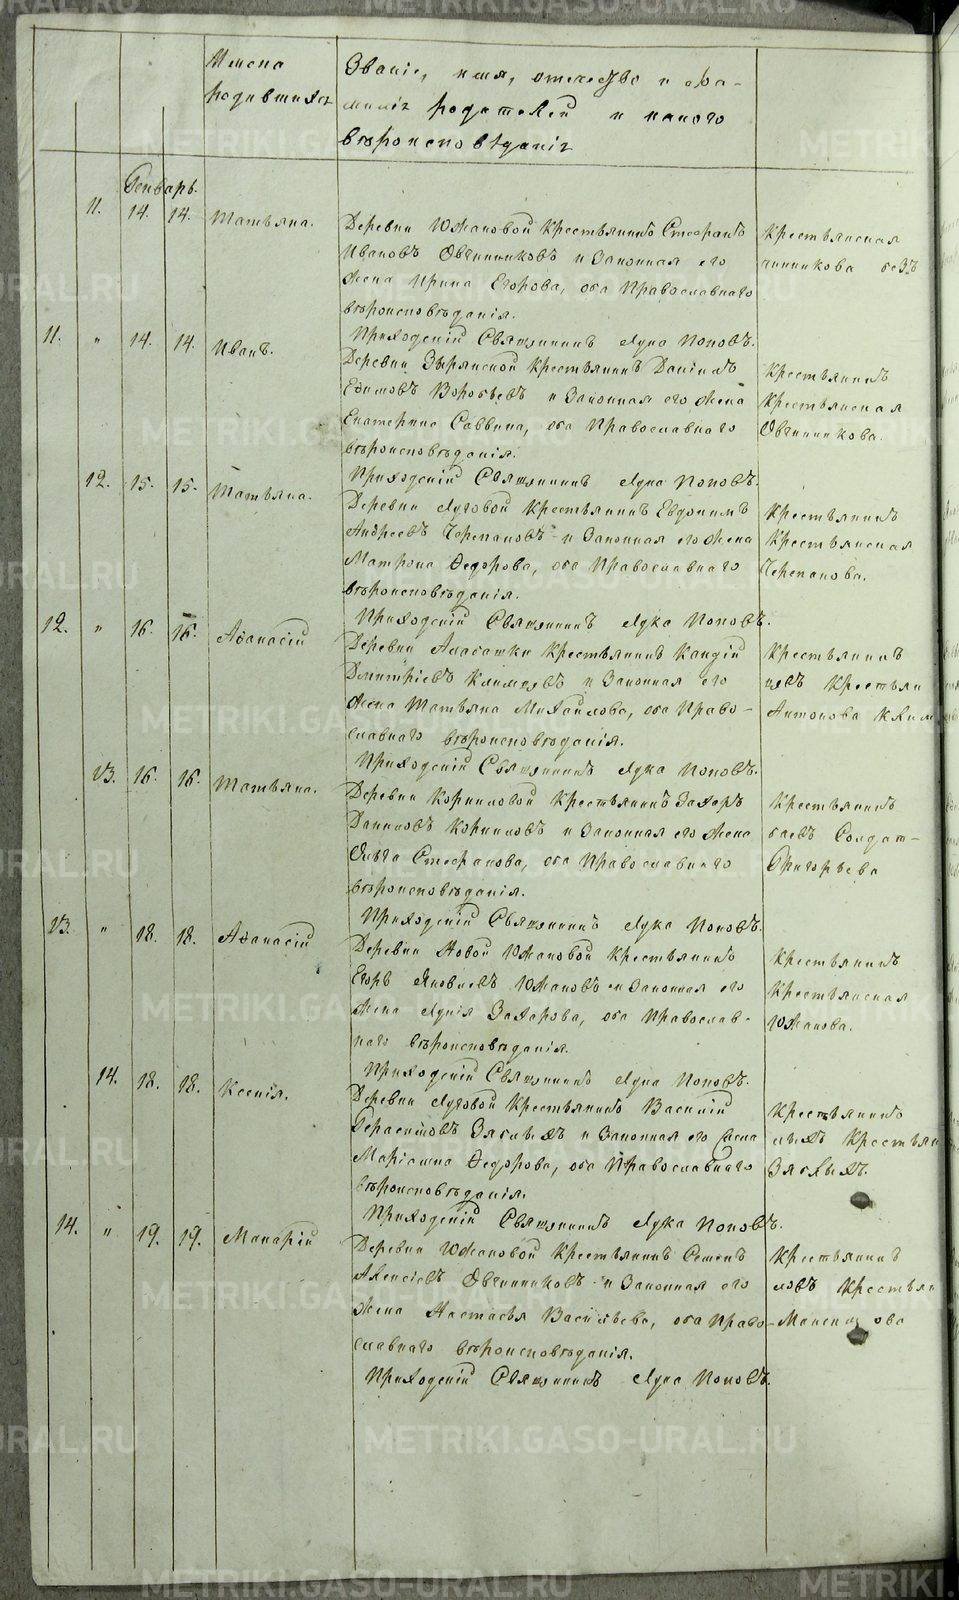 Имена
родившихся
Званіе, имя, отчество и фа-
миліа родителей и какого
вѣроисповѣданіа
Генварь.
11. 14. 14. Татьяна.
Деревни Южаковой Крестьянинъ Стефанъ
Ивановъ Овчинниковъ и Законная его
жена Ирина Егорова, оба Православнаго
вѣроисповѣданія.
Приходскій Священникъ Лука Поповъ.
Крестьянская
чинникова
11. " 14. 14. Иванъ.
Деревни Зырянской Крестьянинъ Даніилъ
Ефимовъ Воробьевъ и Законная его жена
Екатерина Саввина, оба Православнаго
вѣроисповѣданія.
Приходскій Священникъ Лука Поповъ.
Крестьянинъ
Крестьянская
Овчинникова.
12. 15. 15. Татьяна.
Деревни Луговой Крестьянинъ Евдокимъ
Андреевъ Черепановъ и Законная его жена
Матрона Федорова, оба Православнаго
вѣроисповѣданія.
Приходскій Священникъ Лука Поповъ.
Крестьянинъ
Крестьянская
Черепанова.
12. " 16. 16. Афанасій
Деревни Алабашки Крестьянинъ
Димитріевъ и Законная его
жена Татьяна Михаилова, оба Право-
славнаго вѣроисповѣданія.
Приходскій Священникъ Лука Поповъ.
Крестьянинъ
Крестьян
Антонова
13. 16. 16. Татьяна.
Деревни Корниловой Крестьянинъ Захаръ
Даниловъ Корниловъ и Законная его жена
Ольга Стефанова, оба Православнаго
вѣроисповѣданія.
Приходскій Священникъ Лука Поповъ.
Крестьянинъ
Солдат-
Григорьева
13. " 18. 18. Афанасій
Деревни Новой Южаковой Крестьянинъ
Егоръ Яковлевъ Южаковъ и Законная его
жена Лукія Захарова, оба Православ-
наго вѣроисповѣданія.
Приходскій Священникъ Лука Поповъ.
Крестьянинъ
Крестьянская
Южакова.
14. 18. 18. Ксенія.
Деревни Луговой Крестьянинъ Василій
Герасимовъ и Законная его жена
Маріамна Федорова, оба Православнаго
вѣроисповѣданія.
Приходскій Священникъ Лука Поповъ.
Крестьянинъ
Крестьян
14. " 19. 19. Макарій
Деревни Южаковой Крестьянинъ Семенъ
Алексіевъ Овчинниковъ и Законная его
жена Настасья Васильева, оба Право-
славнаго вѣроисповѣданія.
Приходскій Священникъ Лука Поповъ.
Крестьянинъ
ловъ Крестьян
METRIKI.GASO-URAL.RU